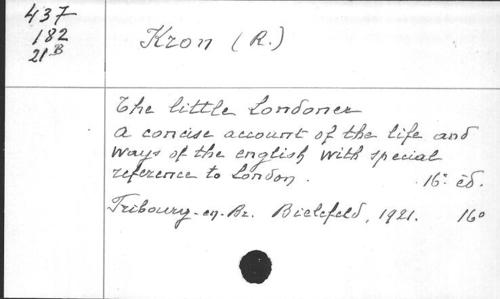 437
182
21 B
Kron (R.)
The little Londoner
a concise account of the life and
ways of the english with special
reference to London.
16e éd.
Fribourg-en-Br. Bielefeld, 1921. 16o